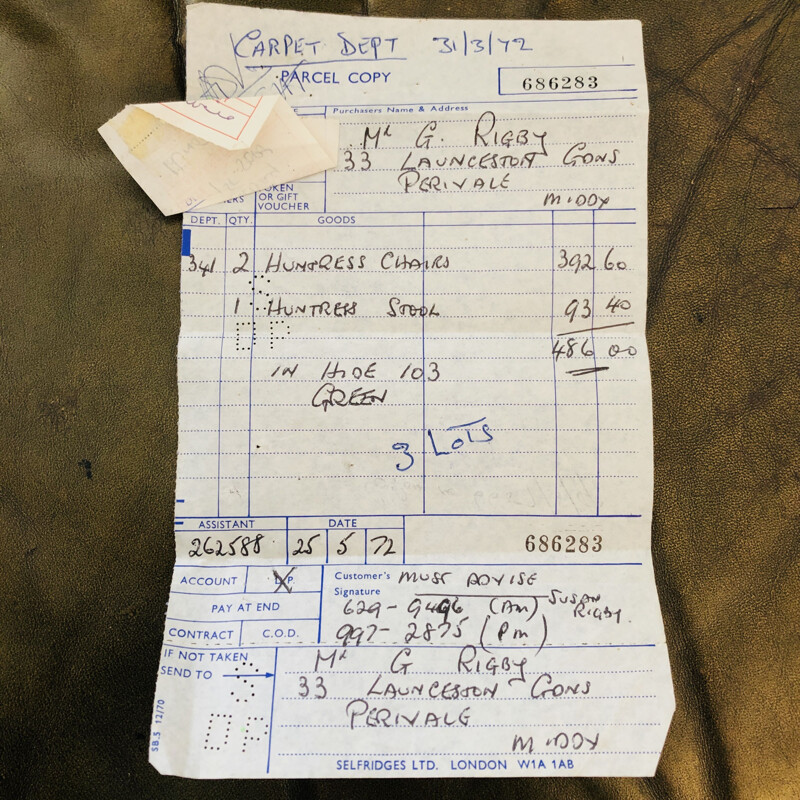 CARPET DEPT 31/3/72
PARCEL COPY
686283
Purchasers Name & Address
Mr G. RIGBY
33 LAUNCESTON GDNS
PERIVALE
MIDDX
OR GIFT
VOUCHER
DEPT. QTY. GOODS
341 2 HUNTRESS CHAIRS 392 60
1 HUNTRESS STOOL 93 40
486 00
IN HIDE 103
GREEN
3 LOTS
ASSISTANT DATE
262588 25 5 72
686283
ACCOUNT D.P.
PAY AT END
CONTRACT C.O.D.
Customer's Signature MUST ADVISE
629-9496 (AM) SUSAN RIGBY.
997-2875 (PM)
IF NOT TAKEN
SEND TO
Mr G RIGBY
33 LAUNCESTON GDNS
PERIVALE
MIDDX
SB.5 12/70
SELFRIDGES LTD. LONDON W1A 1AB